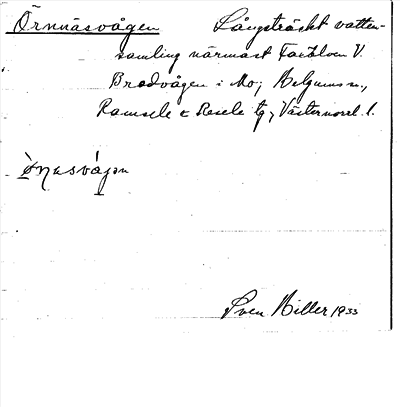 Örnnäsvågen Långsträckt vatten-
samling närmast Faxälven V.
Bredvågen i Mo, Helgums sn.,
Ramsele & Resele tg, Västernorrl. l.
Sven Hiller 1933